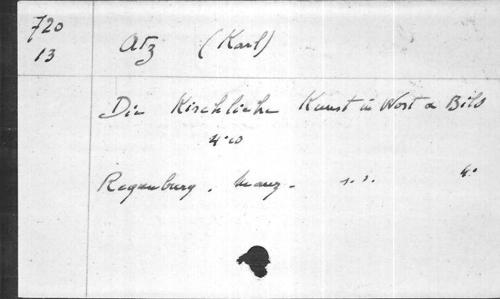 720
13
Atz (Karl)
Die Kirchliche Kunst in Wort u Bild
4.o
Regensburg. Manz. s. d. 4o